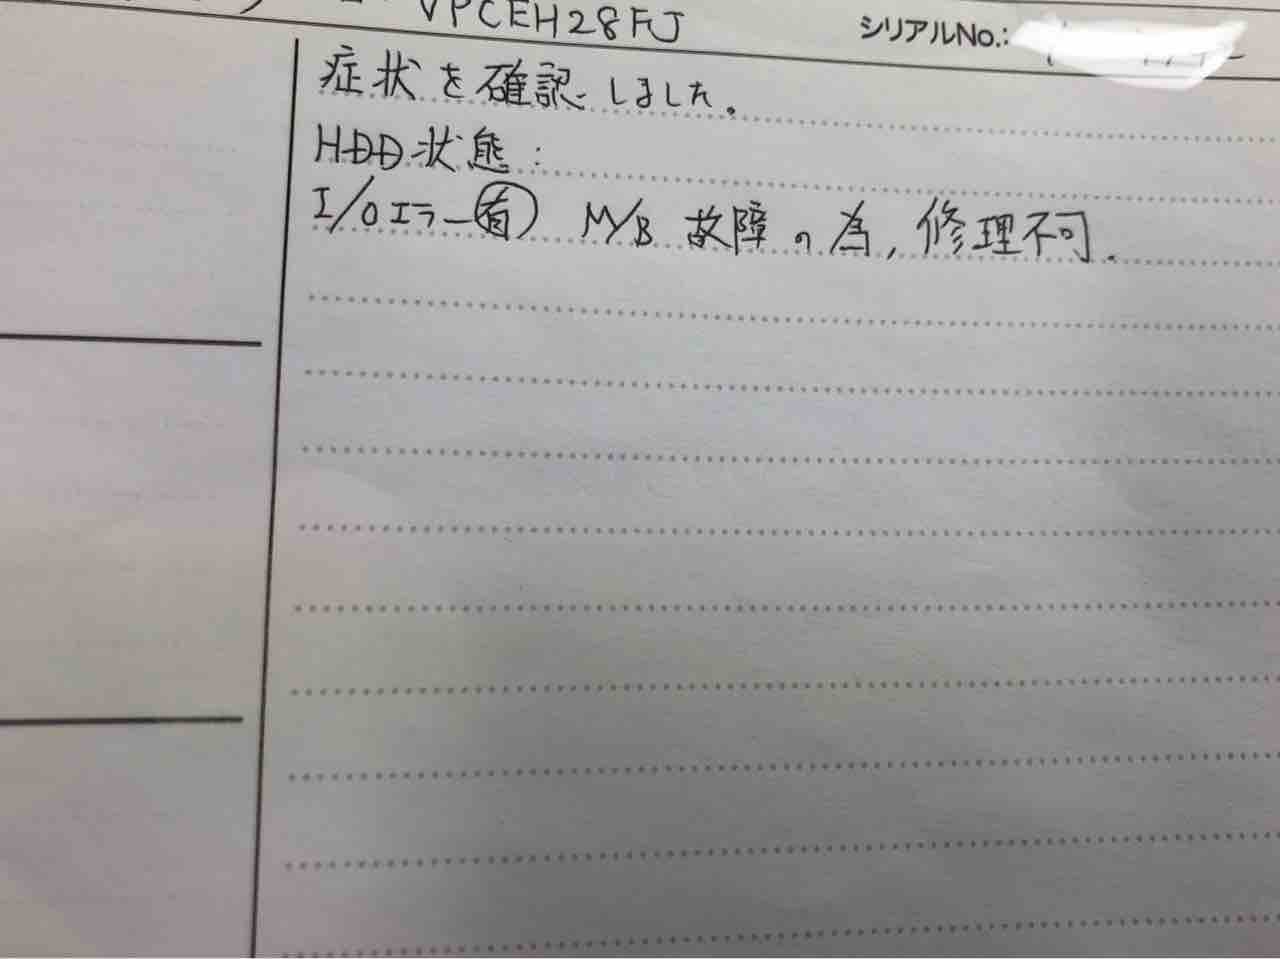 VPCEH28FJ シリアルNo.:
症状を確認しました。
HDD状態:
I/Oエラー(有) M/B 故障の為、修理不可.